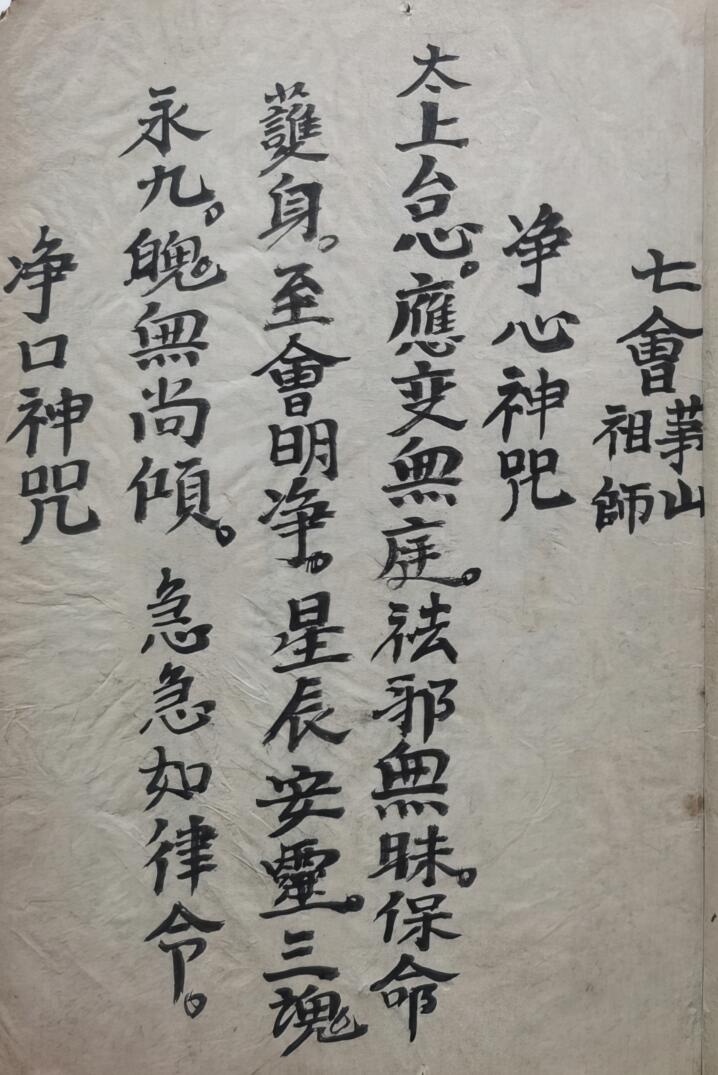 七會茅山祖師
净心神咒
太上台怠。應变無庭。祛邪無昧。保命
護身。至會明净。星辰安靈。三魂
永九。魄無尚傾。急急如律令。
净口神咒